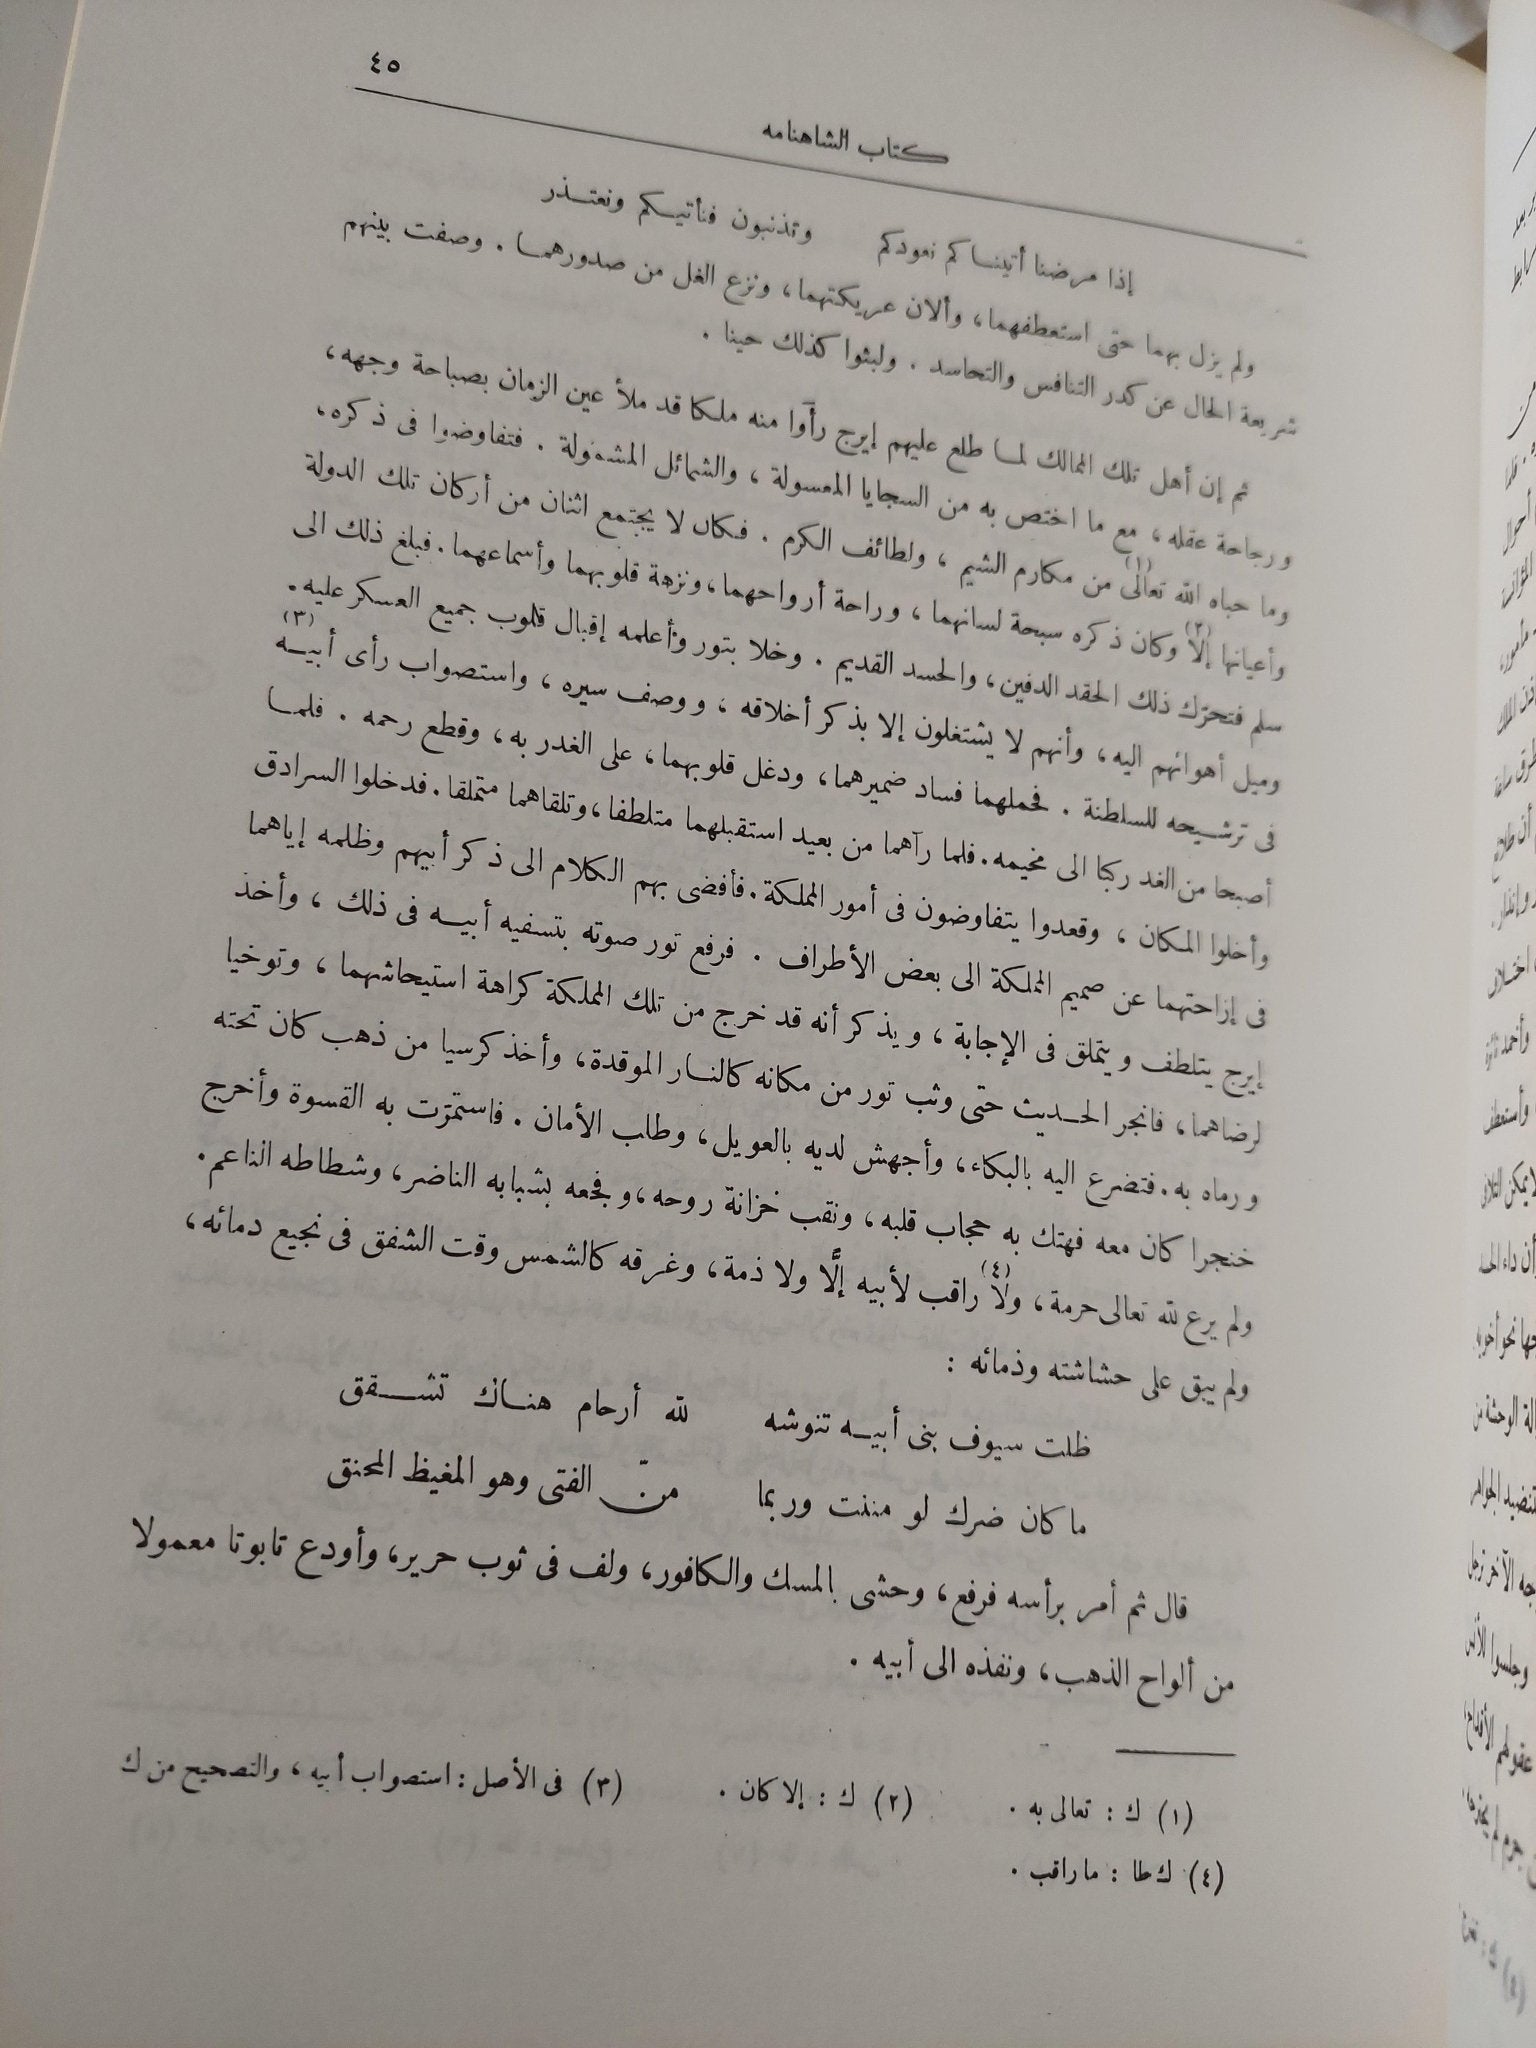 ٤٥
كتاب الشاهنامه
إذا مرضنا أتيناكم نعودكم وتذنبون فنأتيكم ونعتذر
ولم يزل بهما حتى استعطفهما، وألان عريكتهما، ونزع الغل من صدورهما. وصفت بينهم
شريعة الحال عن كدر التنافس والتحاسد. ولبثوا كذلك حينا.
ثم إن أهل تلك الممالك لما طلع عليهم إيرج رأوا منه ملكا قد ملأ عين الزمان بصباحة وجهه،
ورجاحة عقله، مع ما اختص به من السجايا المعسولة، والشمائل المشمولة. فتفاوضوا فى ذكره،
وما حباه الله تعالى(١) من مكارم الشيم، ولطائف الكرم. فكان لا يجتمع اثنان من أركان تلك الدولة
وأعيانها إلا(٢) وكان ذكره سبحة لسانهما، وراحة أرواحهما، ونزهة قلوبهما وأسماعهما. فبلغ ذلك الى
سلم فتحرّك ذلك الحقد الدفين، والحسد القديم. وخلا بتور وأعلمه إقبال قلوب جميع العسكر عليه.
وميل أهوائهم اليه، وأنهم لا يشتغلون إلا بذكر أخلاقه، ووصف سيره، واستصواب رأى أبيه(٣)
فى ترشيحه للسلطنة. فحملهما فساد ضميرهما، ودغل قلوبهما، على الغدر به، وقطع رحمه. فلما
أصبحا من الغد ركبا الى مخيمه. فلما رآهما من بعيد استقبلهما متلطفا، وتلقاهما متملقا. فدخلوا السرادق
وأخلوا المكان، وقعدوا يتفاوضون فى أمور المملكة. فأفضى بهم الكلام الى ذكر أبيهم وظلمه إياهما
فى إزاحتهما عن صميم المملكة الى بعض الأطراف. فرفع تور صوته بتسفيه أبيه فى ذلك، وأخذ
إيرج يتلطف ويتملق فى الإجابة، ويذكر أنه قد خرج من تلك المملكة كراهة استيحاشهما، وتوخيا
لرضاهما، فانجر الحديث حتى وثب تور من مكانه كالنار الموقدة، وأخذ كرسيا من ذهب كان تحته
ورماه به. فتضرع اليه بالبكاء، وأجهش لديه بالعويل، وطلب الأمان. فاستمرّت به القسوة وأخرج
خنجرا كان معه فهتك به حجاب قلبه، ونقب خزانة روحه، وفجعه بشبابه الناضر، وشطاطه الناعم.
ولم يرع لله تعالى حرمة، ولا(٤) راقب لأبيه إلًّا ولا ذمة، وغرقه كالشمس وقت الشفق فى نجيع دمائه،
ولم يبق على حشاشته وذمائه:
ظلت سيوف بنى أبيه تنوشه لله أرحام هناك تشقق
ما كان ضرك لو مننت وربما منّ الفتى وهو المغيظ المحنق
قال ثم أمر برأسه فرفع، وحشى بالمسك والكافور، ولف فى ثوب حرير، وأودع تابوتا معمولا
من ألواح الذهب، ونفذه الى أبيه.
(١) ك: تعالى به. (٢) ك: إلا كان. (٣) فى الأصل: استصواب أبيه، والتصحيح من ك
(٤) ك طا: ما راقب.